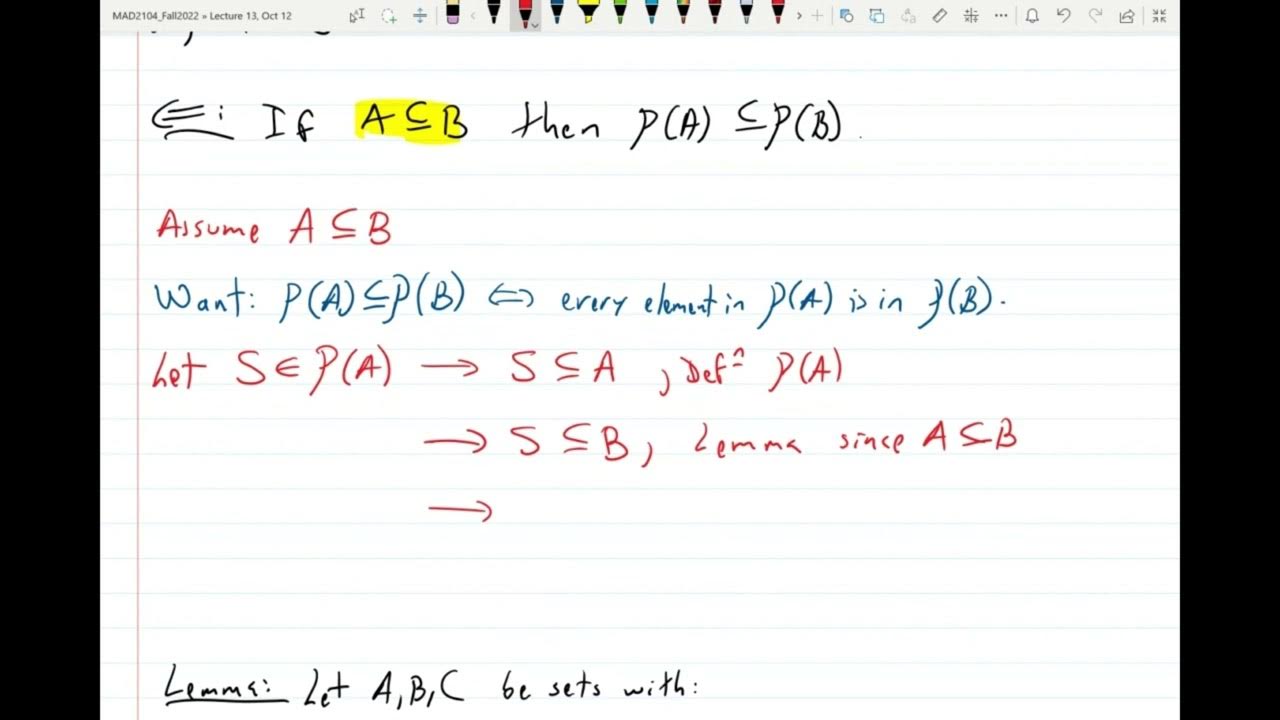 MAD2104_Fall2022 » Lecture 13, Oct 12
⇐: If A ⊆ B then P(A) ⊆ P(B).
Assume A ⊆ B
Want: P(A) ⊆ P(B) ⟺ every element in P(A) is in P(B).
Let S ∈ P(A) → S ⊆ A , Defⁿ P(A)
→ S ⊆ B , Lemma since A ⊆ B
→
Lemma: Let A, B, C be sets with: